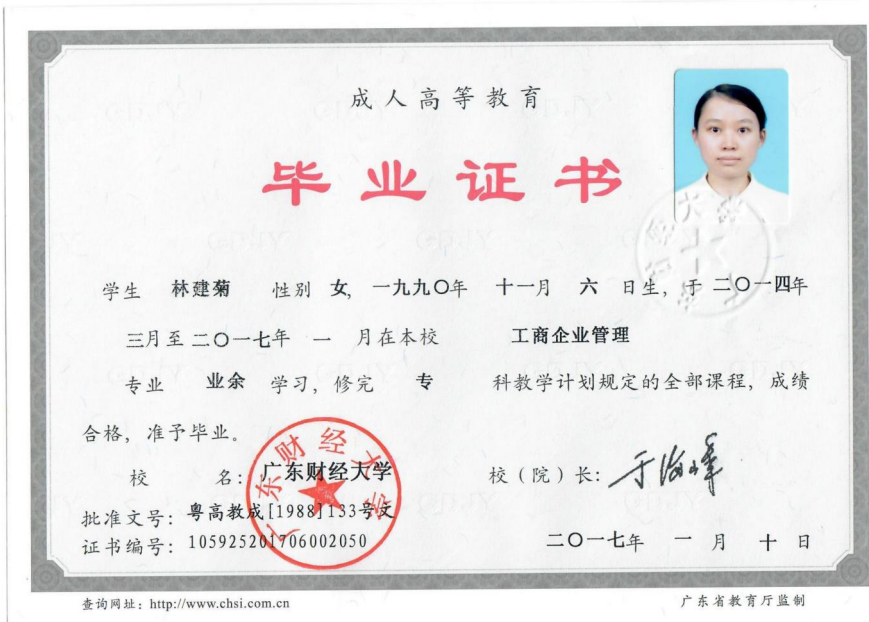 成人高等教育
毕业证书
学生 林建菊 性别 女, 一九九〇年 十一月 六 日生, 于 二〇一四年
三月至二〇一七年 一 月在本校 工商企业管理
专业 业余 学习, 修完 专 科教学计划规定的全部课程, 成绩
合格, 准予毕业。
校 名: 广东财经大学 校(院)长: 于海峰
批准文号: 粤高教成[1988]133号文
证书编号: 105925201706002050 二〇一七年 一 月 十 日
广东财经大学
查询网址: http://www.chsi.com.cn 广东省教育厅监制